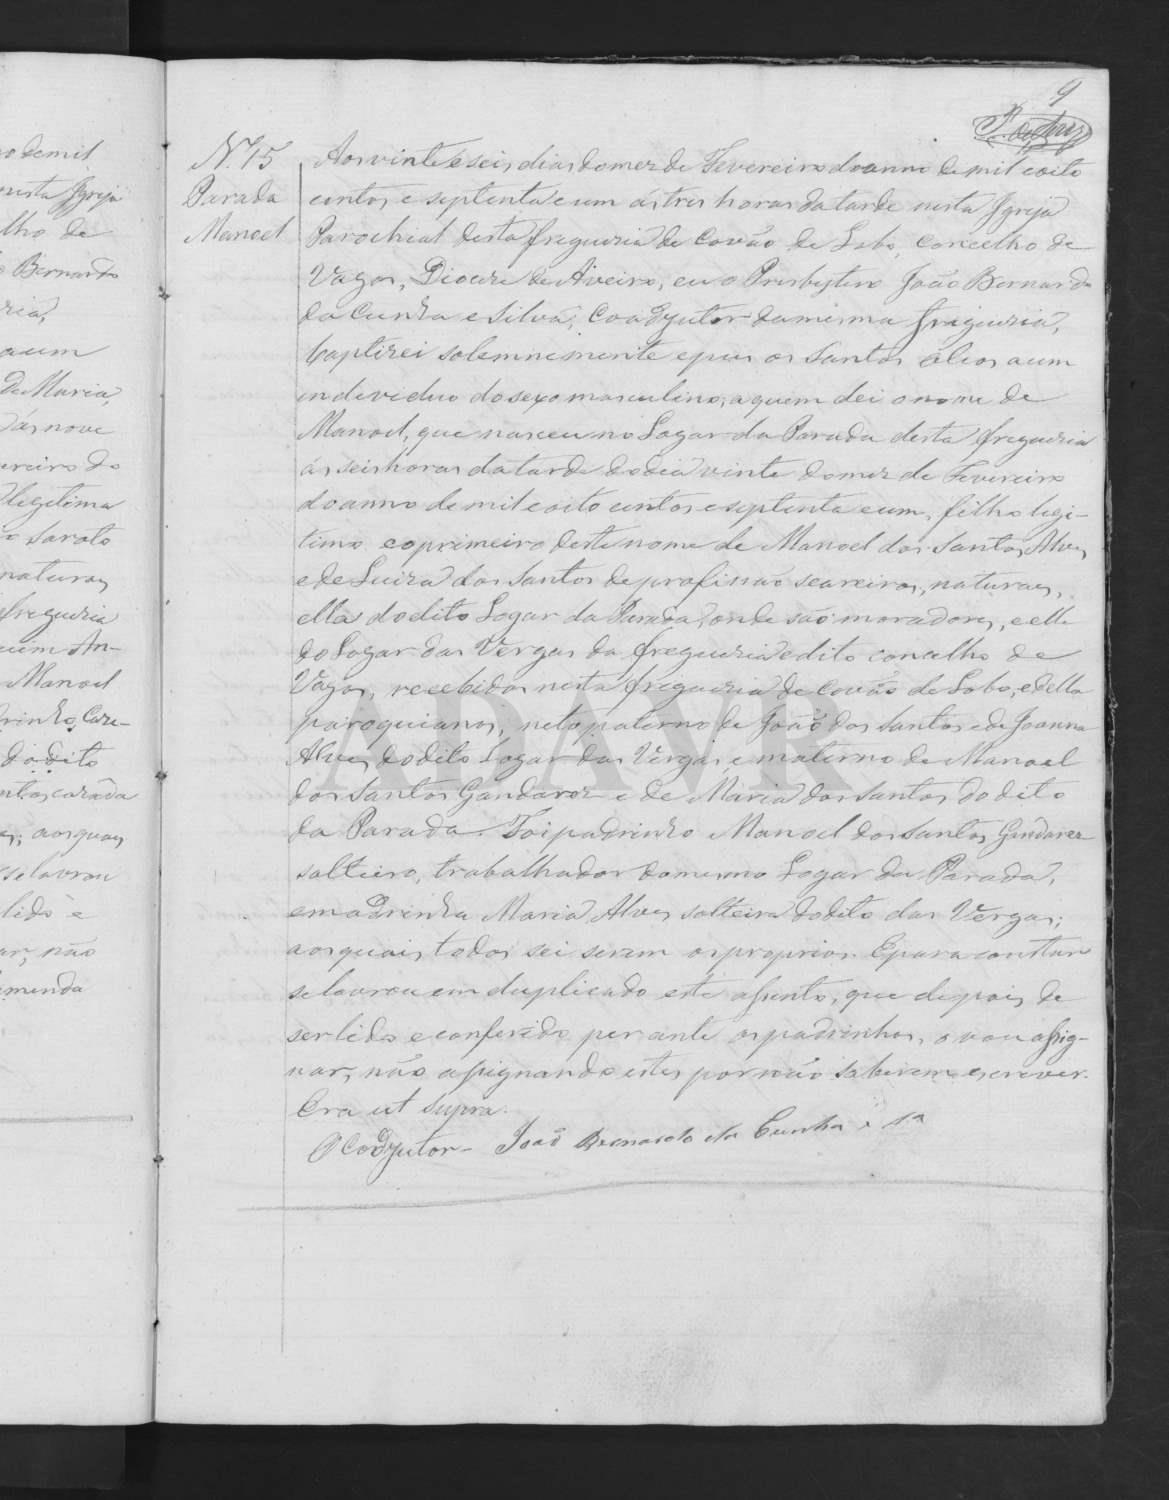 9
N.º 15
Parada
Manoel
Aos vinte e seis dias do mez de Fevereiro do anno de mil e oito
centos e septenta e um ás tres horas da tarde nesta Igreja
Parochial desta freguezia de Covão de Lobo, Concelho de
Vagos, Diocese de Aveiro, eu o Presbytero João Bernardo
da Cunha e Silva, Coadjutor da mesma freguezia,
baptizei solemnemente e puz os Santos óleos a um
individuo do sexo masculino, a quem dei o nome de
Manoel, que nasceu no Logar da Parada desta freguezia
ás seis horas da tarde do dia vinte do mez de Fevereiro
do anno de mil e oito centos e septenta e um, filho legi-
timo e o primeiro deste nome de Manoel dos Santos Alves
e de Luiza dos Santos de profissão seareiros, naturaes,
ella do dito Logar da Parada, onde são moradores, e elle
do Logar das Vergas da freguezia e dito concelho de
Vagos, recebidos nesta freguezia de Covão de Lobo, e della
paroquianos, neto paterno de João dos Santos e de Joanna
Alves do dito Logar das Vergas, e materno de Manoel
dos Santos Gandarez e de Maria dos Santos do dito
da Parada. Foi padrinho Manoel dos Santos Gandarez
solteiro, trabalhador do mesmo Logar da Parada,
e madrinha Maria Alves solteira do dito das Vergas;
aos quais todos sei serem os proprios. E para constar
se lavrou em duplicado este assento, que depois de
ser lido e conferido perante os padrinhos, o vou assig-
nar, não assignando estes por não saberem escrever.
Era ut supra.
O Coadjutor - João Bernardo da Cunha e S.ª
o de mil
nesta Igreja
lho de
Bernardo
zia,
a um
de Maria,
ás nove
ereiro do
legitima
o Saroto
naturaes
freguezia
An-
Manoel
do dito
aos quaes
se lavrou
lido e
ar, não
emenda
ADAVR